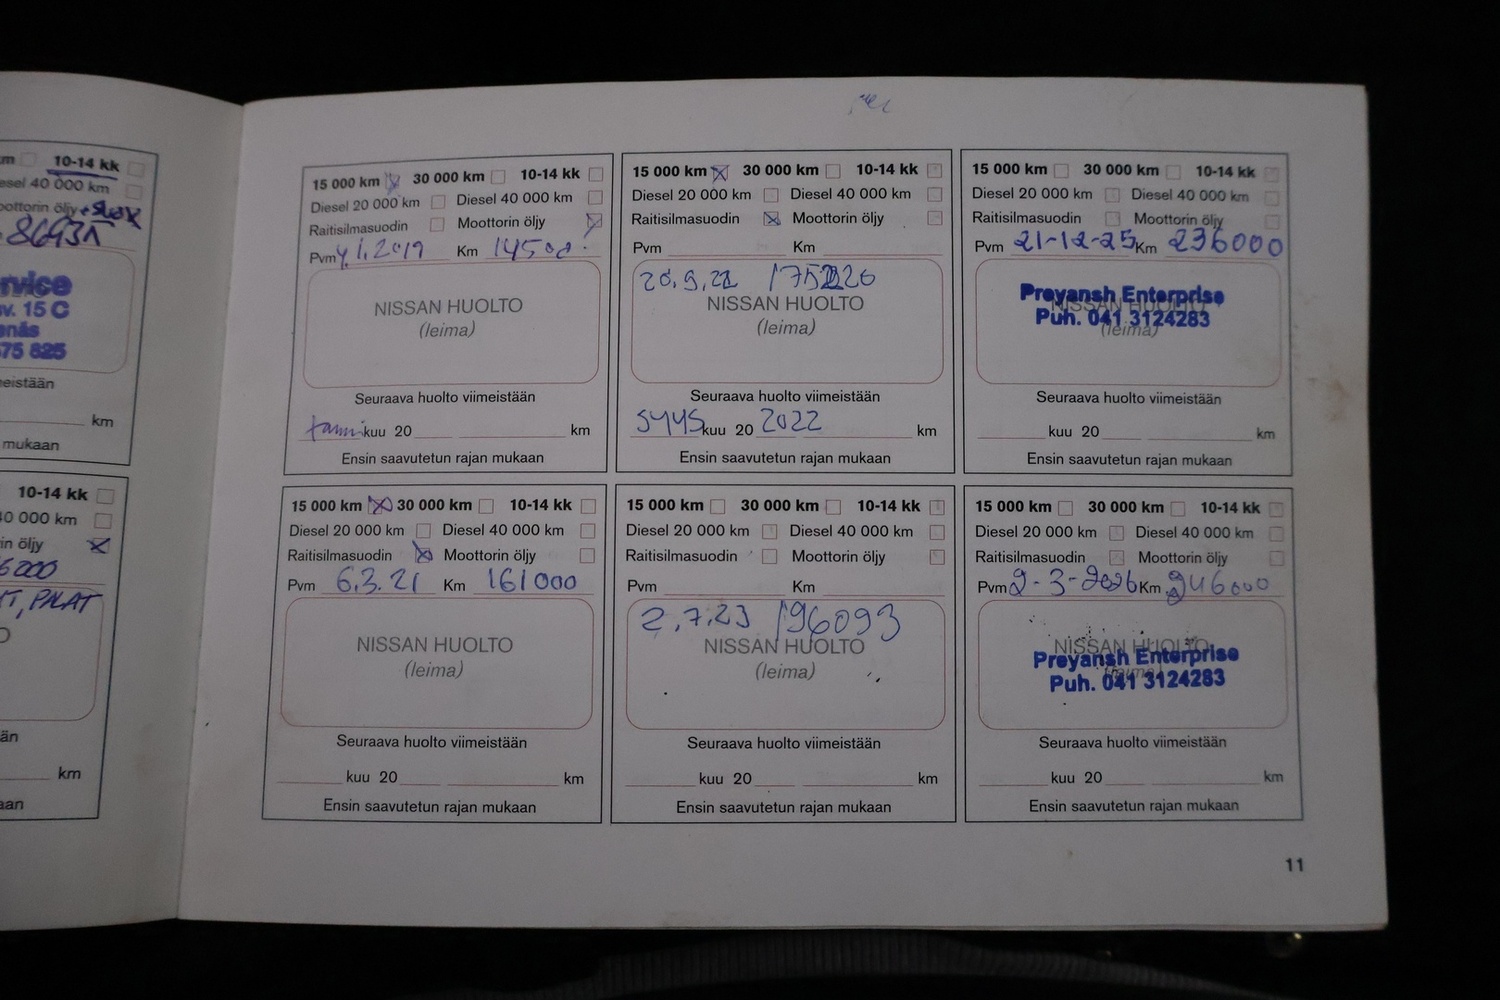 10-14 kk
40 000 km
86931
rvice
v. 15 C
75 825
eistään
km
mukaan
10-14 kk
40 000 km
in öljy
6000
T, PALAT
än
km
aan
15 000 km 30 000 km 10-14 kk
Diesel 20 000 km Diesel 40 000 km
Raitisilmasuodin Moottorin öljy
Pvm 4.1.2019 Km 14500
NISSAN HUOLTO
(leima)
Seuraava huolto viimeistään
tammi kuu 20 km
Ensin saavutetun rajan mukaan
15 000 km 30 000 km 10-14 kk
Diesel 20 000 km Diesel 40 000 km
Raitisilmasuodin Moottorin öljy
Pvm Km
NISSAN HUOLTO
(leima)
Seuraava huolto viimeistään
SYYS kuu 20 2022 km
Ensin saavutetun rajan mukaan
15 000 km 30 000 km 10-14 kk
Diesel 20 000 km Diesel 40 000 km
Raitisilmasuodin Moottorin öljy
Pvm 21-12-25 Km 236000
NISSAN HUOLTO
Preyansh Enterprise
Puh. 041 3124283
(leima)
Seuraava huolto viimeistään
kuu 20 km
Ensin saavutetun rajan mukaan
15 000 km 30 000 km 10-14 kk
Diesel 20 000 km Diesel 40 000 km
Raitisilmasuodin Moottorin öljy
Pvm 6.3.21 Km 161000
NISSAN HUOLTO
(leima)
Seuraava huolto viimeistään
kuu 20 km
Ensin saavutetun rajan mukaan
15 000 km 30 000 km 10-14 kk
Diesel 20 000 km Diesel 40 000 km
Raitisilmasuodin Moottorin öljy
Pvm Km
2.7.23 196093
NISSAN HUOLTO
(leima)
Seuraava huolto viimeistään
kuu 20 km
Ensin saavutetun rajan mukaan
15 000 km 30 000 km 10-14 kk
Diesel 20 000 km Diesel 40 000 km
Raitisilmasuodin Moottorin öljy
Pvm 2-3-2026 Km 246000
NISSAN HUOLTO
Preyansh Enterprise
(leima)
Puh. 041 3124283
Seuraava huolto viimeistään
kuu 20 km
Ensin saavutetun rajan mukaan
11